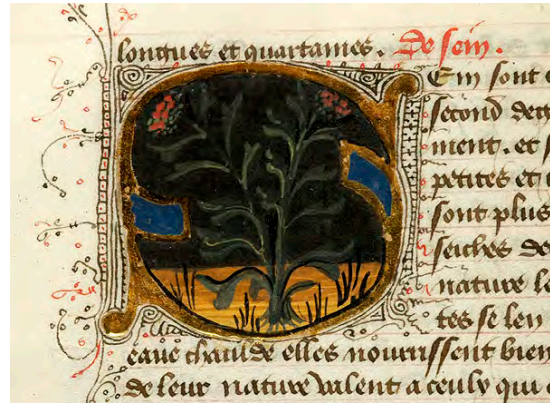 longues et quartaines. De sein.
Ein sont
second deg
ment. et s
petites et
sont plus
seiches de
nature le
tes se len
eaue chaude elles nourrissent bien
de leur nature valent a ceulx qui